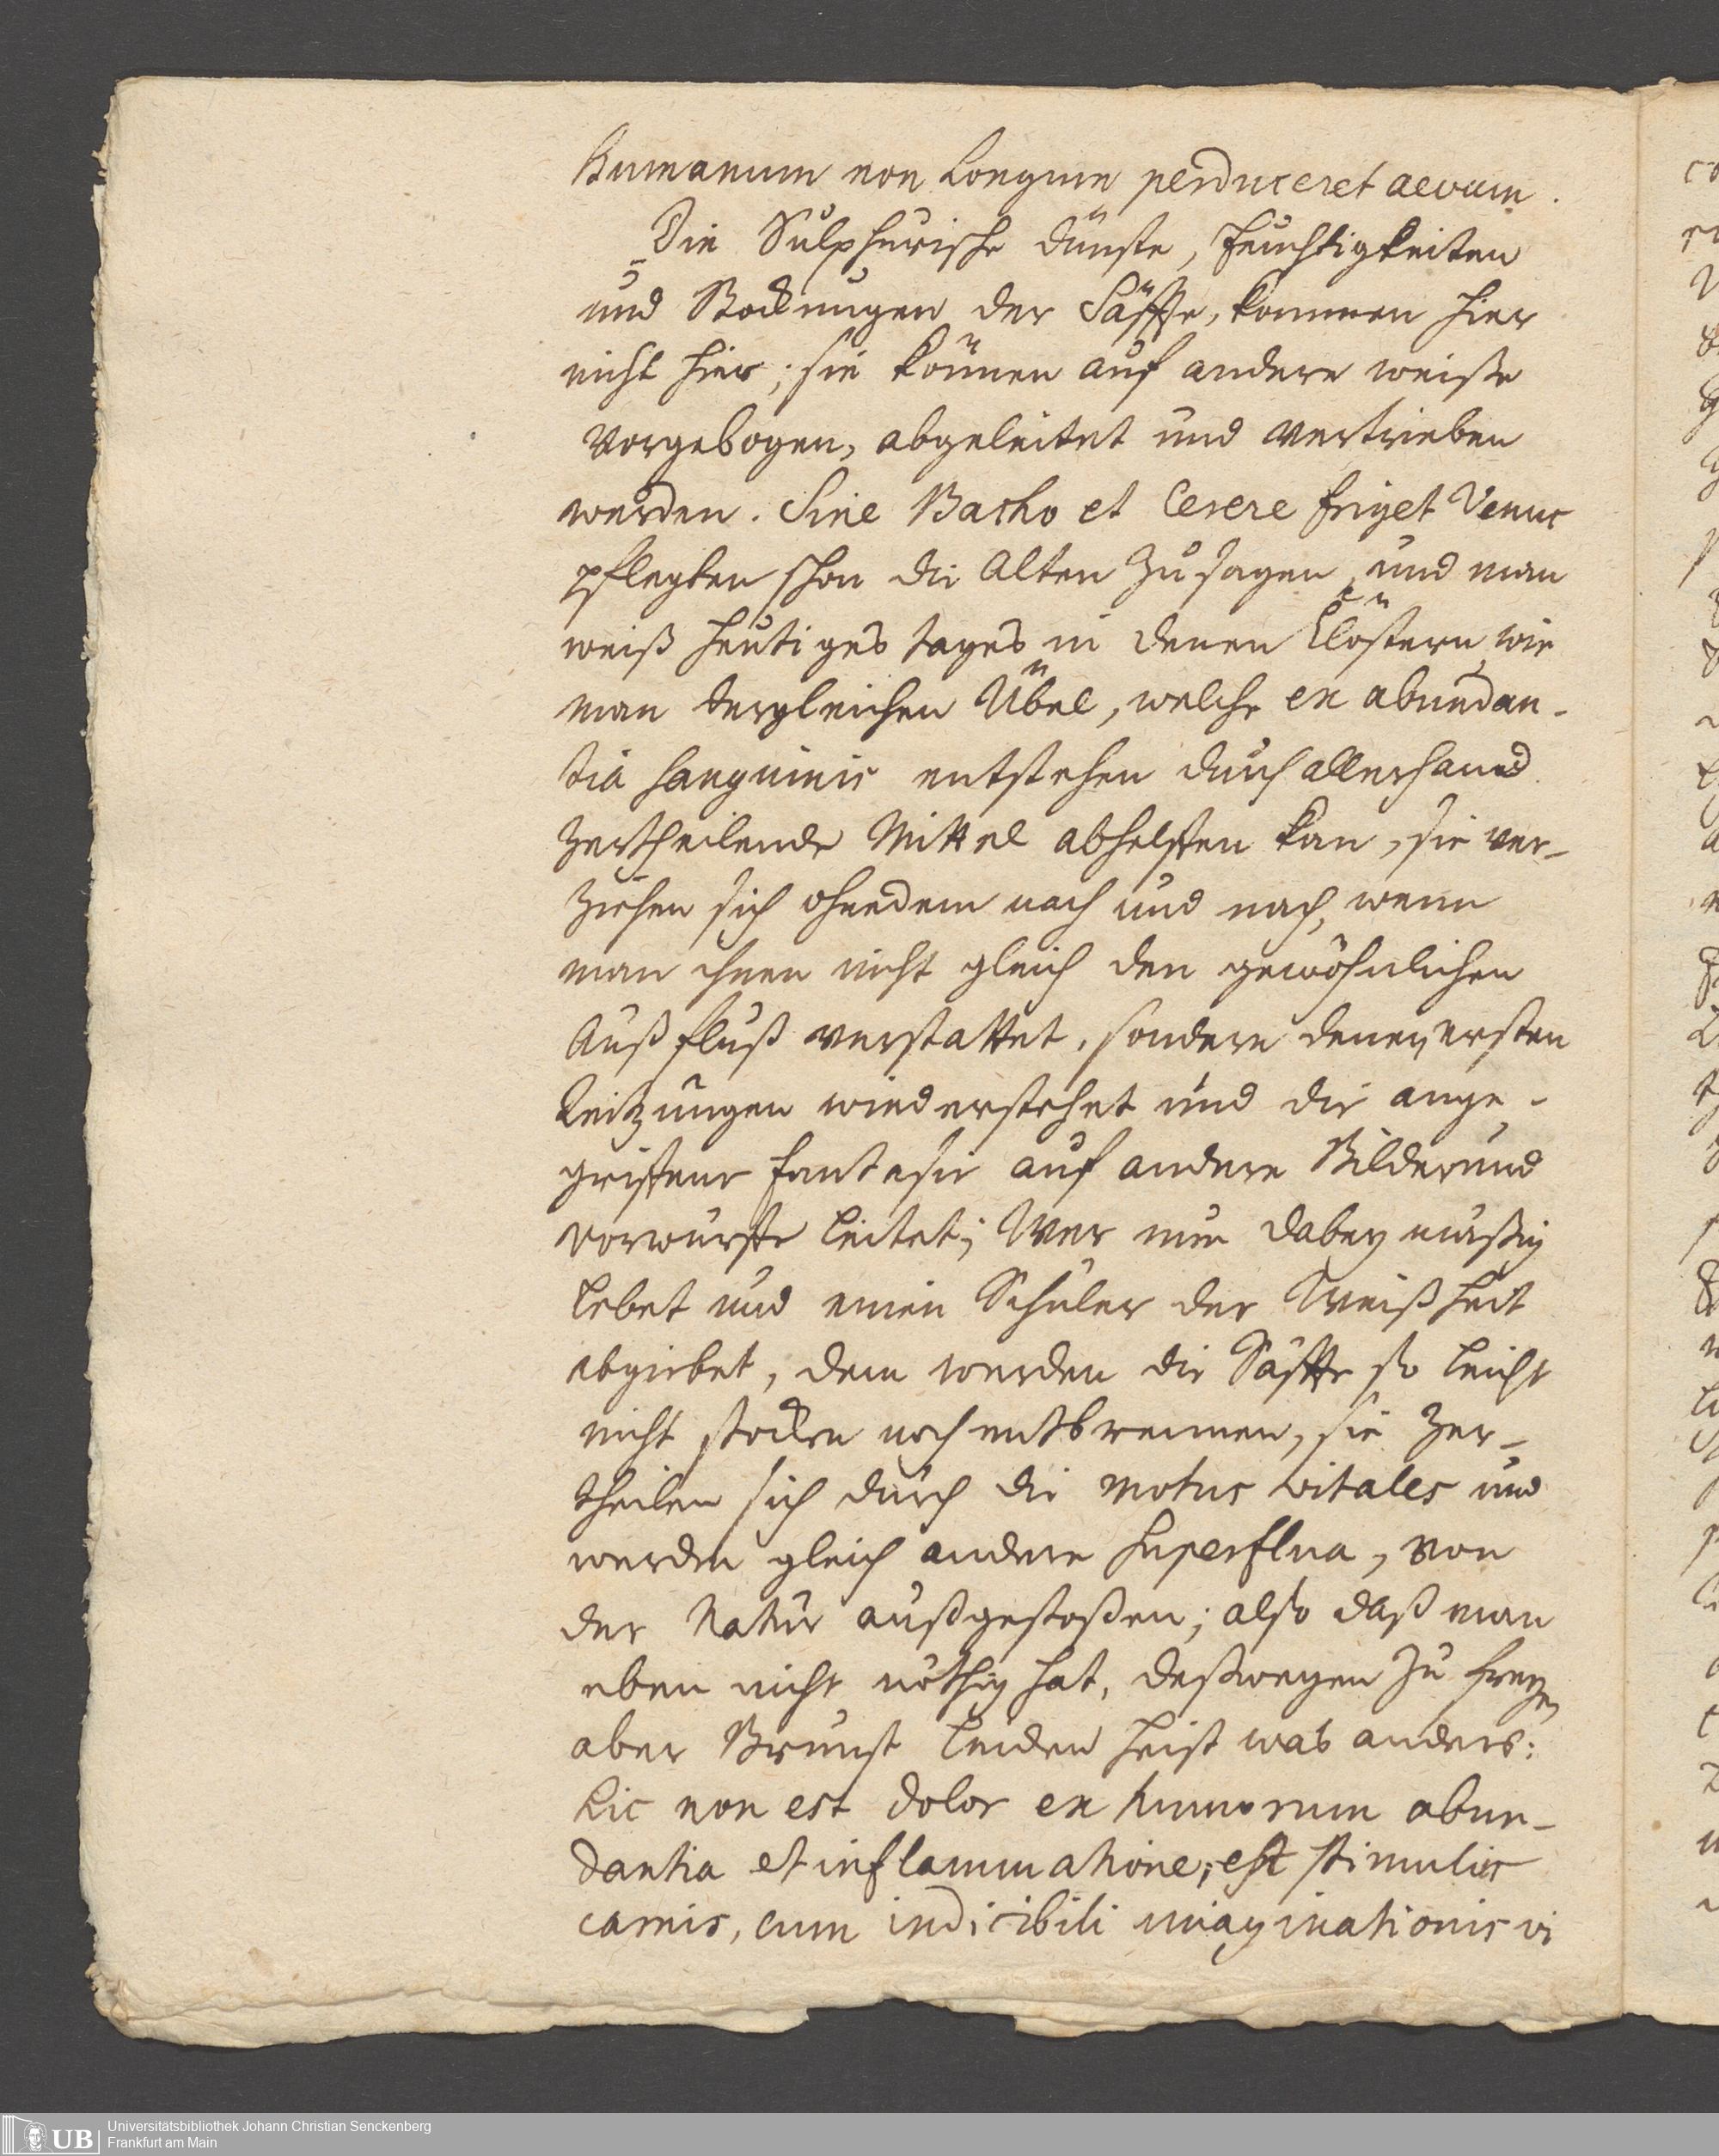 humanum non Longum perduceret aevum.
Die Sulphurische dünste, feuchtigkeiten
und Stockungen der Säffte, kommen hier
nicht hier; sie können auf andere weiße
vorgebogen, abgeleitet und vertrieben
werden. Sine Bacho et Cerere friget Venus
pflegten schon die Alten zu sagen, und man
weiß heutiges tages in denen Clöstern, wie
man dergleichen Übel, welche ex abundan-
tia sanguinis entstehen durch allerhand
zertheilende Mittel abhelffen kan, sie ver-
ziehen sich ohnedem nach und nach, wenn
man ihnen nicht gleich den gewöhnlichen
Außfluß verstattet, sondern denen ersten
Reitzungen wiederstehet und die ange-
griffene fantasie auf andere Bilder und
vorwürffe leitet; Wer nun dabey mäßig
lebet und einen Schüler der Weißheit
abgiebet, dem werden die Säffte so leicht
nicht stocken noch entbrennen, sie zer-
theilen sich durch die motus vitales und
werden gleich andern superflua, von
der Natur außgestoßen; also daß man
eben nicht nöthig hat, deßwegen zu freyen
aber Brunst leiden heist was anders:
hic non est dolor ex humorum abun-
dantia et inflammatione; est stimulus
carnis, cum indicibili imaginationis vi
UB Universitätsbibliothek Johann Christian Senckenberg
Frankfurt am Main